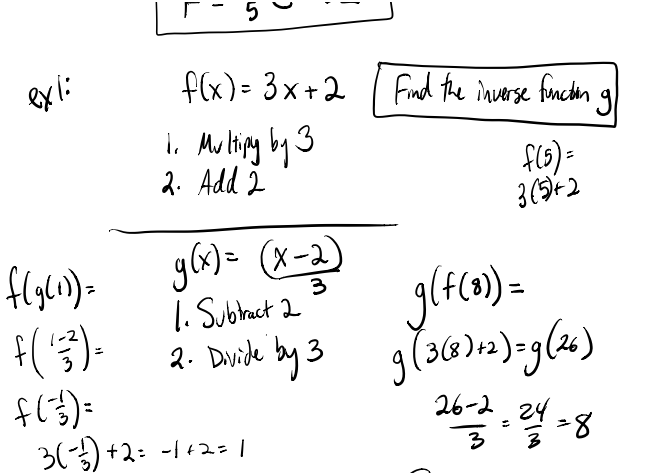 5
ex1:
f(x) = 3x + 2
Find the inverse function g
1. Multipy by 3
2. Add 2
f(5) =
3(5)+2
g(x) = (x-2)/3
1. Subtract 2
2. Divide by 3
f(g(1)) =
f((1-2)/3) =
f(-1/3) =
3(-1/3) + 2 = -1 + 2 = 1
g(f(8)) =
g(3(8)+2) = g(26)
(26-2)/3 = 24/3 = 8